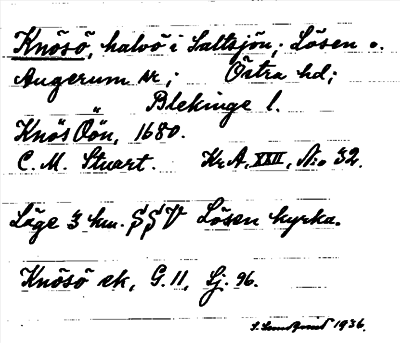 Knösö, halvö i Saltsjön; Lösen o.
Augerum sk; Östra hd;
Blekinge l.
Knös Öön, 1680.
C. M. Stuart. Kr.A. XXII, N:o 32.
Läge 3 km. SSV Lösen kyrka.
Knösö ek, G. 11, Lj. 96.
1936.